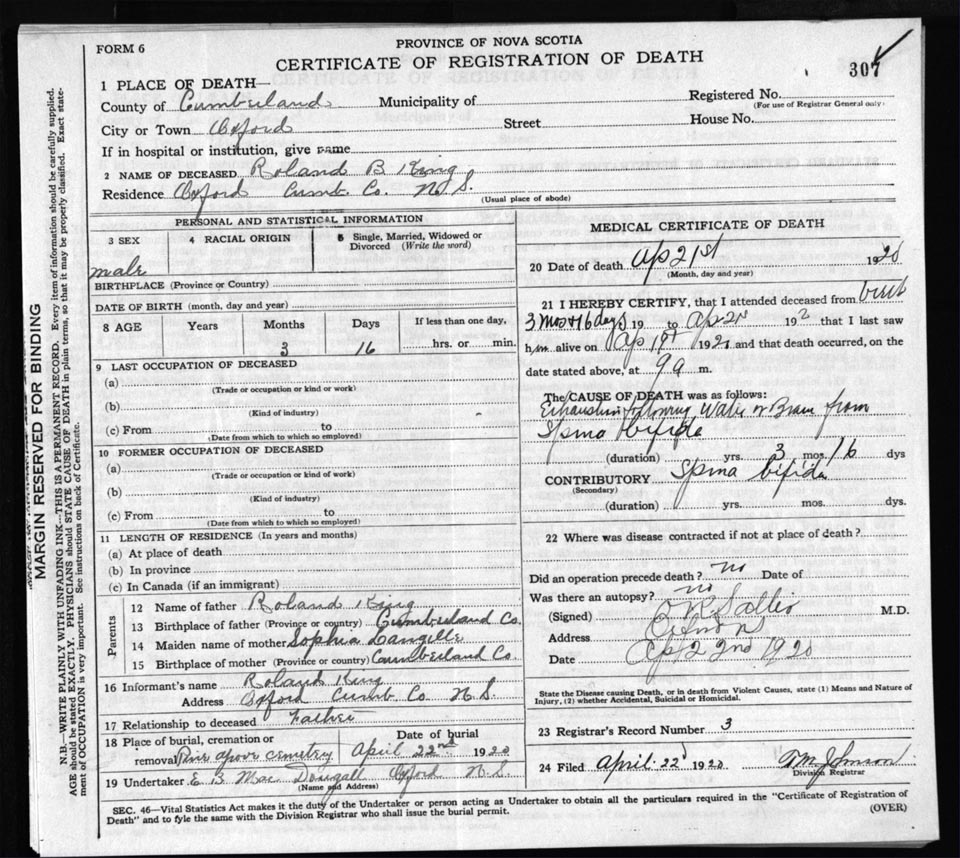 FORM 6
PROVINCE OF NOVA SCOTIA
CERTIFICATE OF REGISTRATION OF DEATH
307
1 PLACE OF DEATH—
Registered No.
(For use of Registrar General only)
County of Cumberland Municipality of
City or Town Oxford Street House No.
If in hospital or institution, give name
2 NAME OF DECEASED Roland B King
Residence Oxford Cumb. Co. N S.
(Usual place of abode)
PERSONAL AND STATISTICAL INFORMATION
3 SEX 4 RACIAL ORIGIN 5 Single, Married, Widowed or Divorced (Write the word)
male
BIRTHPLACE (Province or Country)
DATE OF BIRTH (month, day and year)
8 AGE Years Months Days If less than one day,
3 16 hrs. or min.
9 LAST OCCUPATION OF DECEASED
(a)
(Trade or occupation or kind or work)
(b)
(Kind of industry)
(c) From to
(Date from which to which so employed)
10 FORMER OCCUPATION OF DECEASED
(a)
(Trade or occupation or kind or work)
(b)
(Kind of industry)
(c) From to
(Date from which to which so employed)
11 LENGTH OF RESIDENCE (In years and months)
(a) At place of death
(b) In province
(c) In Canada (if an immigrant)
Parents
12 Name of father Roland King
13 Birthplace of father (Province or country) Cumberland Co.
14 Maiden name of mother Sophia Langille
15 Birthplace of mother (Province or country) Cumberland Co.
16 Informant's name Roland King
Address Oxford Cumb. Co N S.
17 Relationship to deceased Father
18 Place of burial, cremation or removal Pine above cemetry
Date of burial
April 22nd 1920
19 Undertaker E B Mac Dougall Oxford N.S.
(Name and Address)
MEDICAL CERTIFICATE OF DEATH
20 Date of death Ap 21st 1920
(Month, day and year)
21 I HEREBY CERTIFY, that I attended deceased from birth
3 mos + 16 days 19 to Ap 2 192 that I last saw
him alive on Ap 19 192 and that death occurred, on the
date stated above, at 9 a m.
The CAUSE OF DEATH was as follows:
Exhaustion following Water on Brain from
Spina bifida
(duration) yrs. 3 mos. 16 dys
CONTRIBUTORY Spina bifida
(Secondary)
(duration) yrs. mos. dys.
22 Where was disease contracted if not at place of death?
Did an operation precede death? no Date of
Was there an autopsy? no
(Signed) M.D.
Address
Date Ap 22nd 1920
State the Disease causing Death, or in death from Violent Causes, state (1) Means and Nature of
Injury, (2) whether Accidental, Suicidal or Homicidal.
23 Registrar's Record Number 3
24 Filed April 22d 1920 Johnson
Division Registrar
SEC. 46—Vital Statistics Act makes it the duty of the Undertaker or person acting as Undertaker to obtain all the particulars required in the "Certificate of Registration of
Death" and to fyle the same with the Division Registrar who shall issue the burial permit. (OVER)
MARGIN RESERVED FOR BINDING
N.B.—WRITE PLAINLY WITH UNFADING INK—THIS IS A PERMANENT RECORD. Every item of information should be carefully supplied.
AGE should be stated EXACTLY. PHYSICIANS should STATE CAUSE OF DEATH in plain terms, so that it may be properly classified. Exact state-
ment of OCCUPATION is very important. See instructions on back of Certificate.